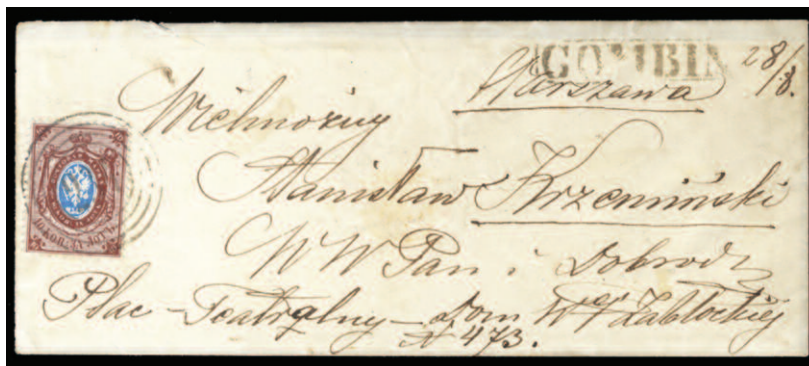 GOMBIN 28/8.
Warszawa
Wielmożny
Stanisław Krzemiński
WW Pan i Dobrodz
Plac - Teatralny - Dom Wej Zabłockiéj
N 473.